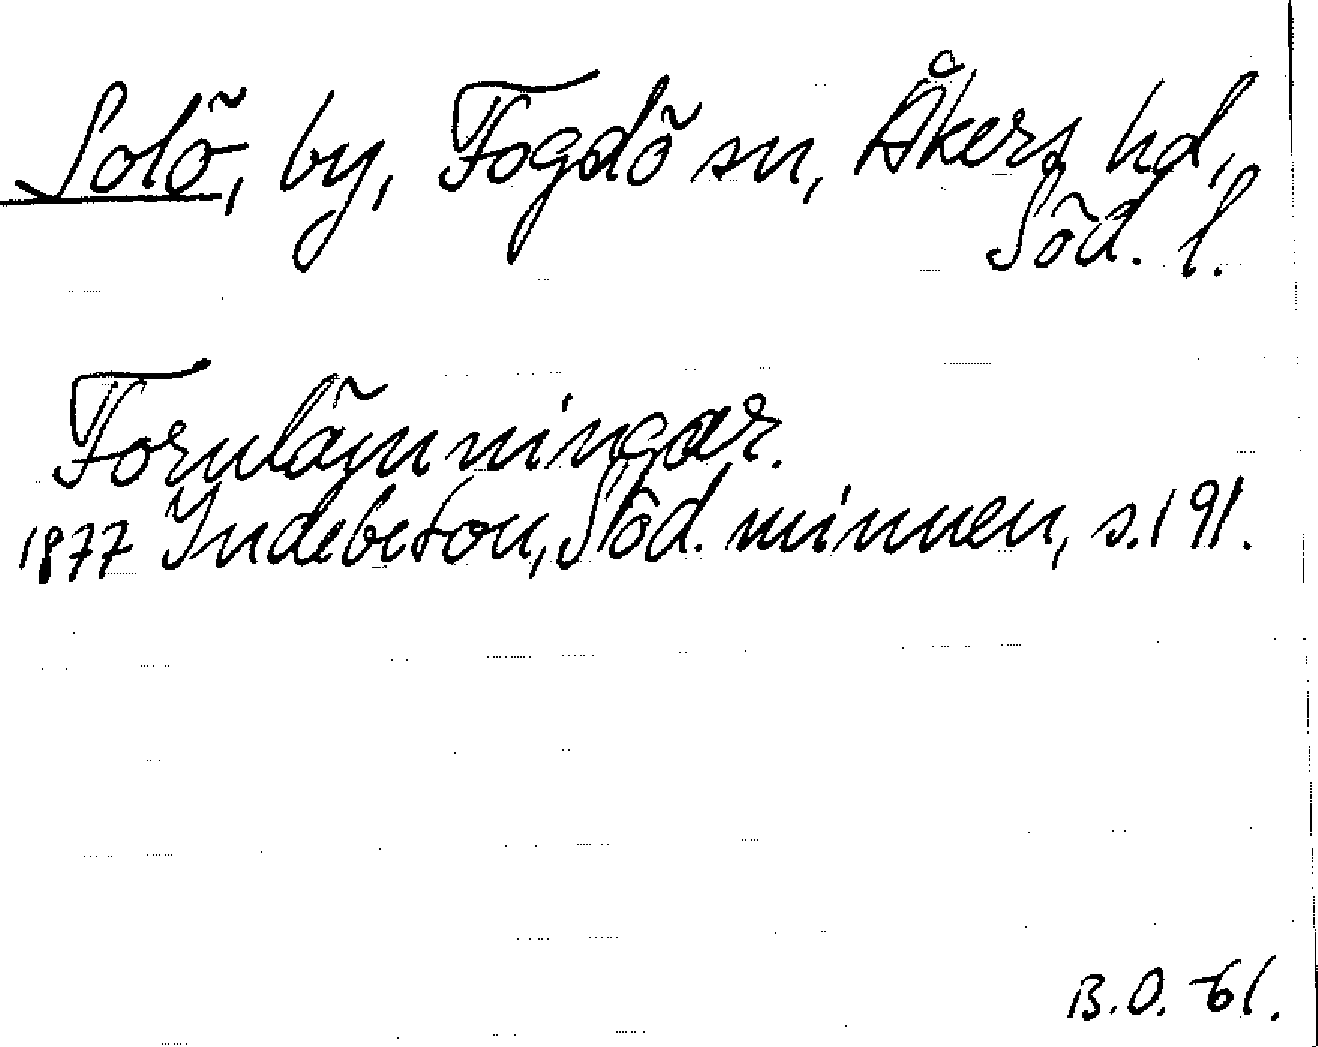 Solö, by, Fogdö sn, Åkers hd,
Söd. l.
Fornlämningar.
1877 Indebetou, Söd. minnen, s. 191.
B.O. -61.